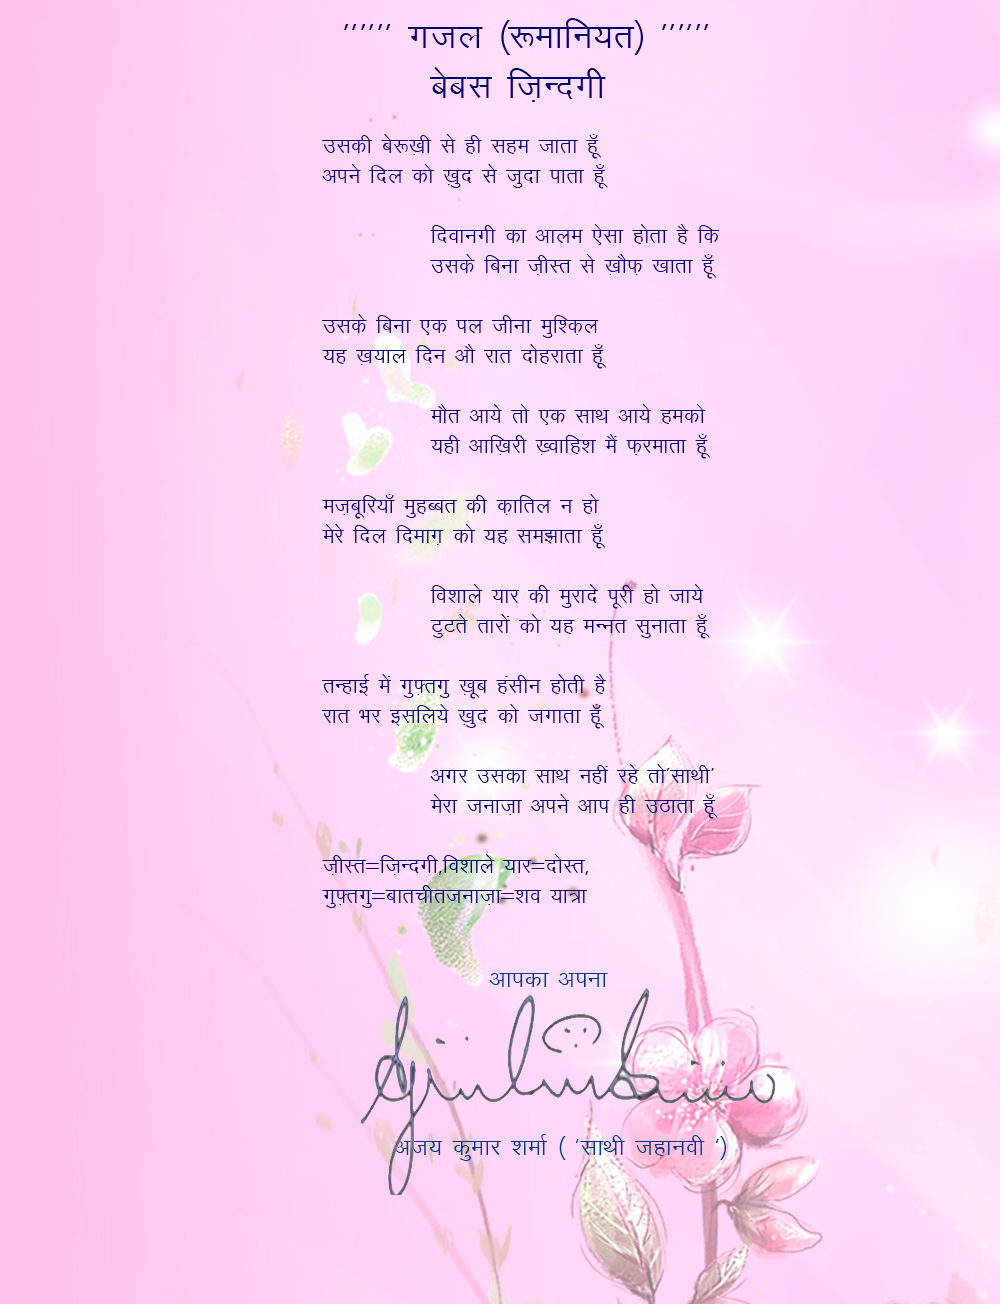 '''''' गजल (रूमानियत) ''''''
बेबस ज़िन्दगी
उसकी बेरूख़ी से ही सहम जाता हूँ
अपने दिल को ख़ुद से जुदा पाता हूँ
दिवानगी का आलम ऐसा होता है कि
उसके बिना ज़ीस्त से ख़ौफ़ खाता हूँ
उसके बिना एक पल जीना मुश्क़िल
यह ख़याल दिन औ रात दोहराता हूँ
मौत आये तो एक साथ आये हमको
यही आख़िरी ख़्वाहिश मैं फ़रमाता हूँ
मज़बूरियाँ मुहब्बत की क़ातिल न हो
मेरे दिल दिमाग़ को यह समझाता हूँ
विशाले यार की मुरादे पूरी हो जाये
टुटते तारों को यह मन्नत सुनाता हूँ
तन्हाई में गुफ़्तगु ख़ूब हंसीन होती है
रात भर इसलिये ख़ुद को जगाता हूँ
अगर उसका साथ नहीं रहे तो'साथी'
मेरा जनाज़ा अपने आप ही उठाता हूँ
ज़ीस्त=ज़िन्दगी,विशाले यार=दोस्त,
गुफ़्तगु=बातचीतजनाज़ा=शव यात्रा
आपका अपना
अजय कुमार शर्मा ( 'साथी जहानवी ')